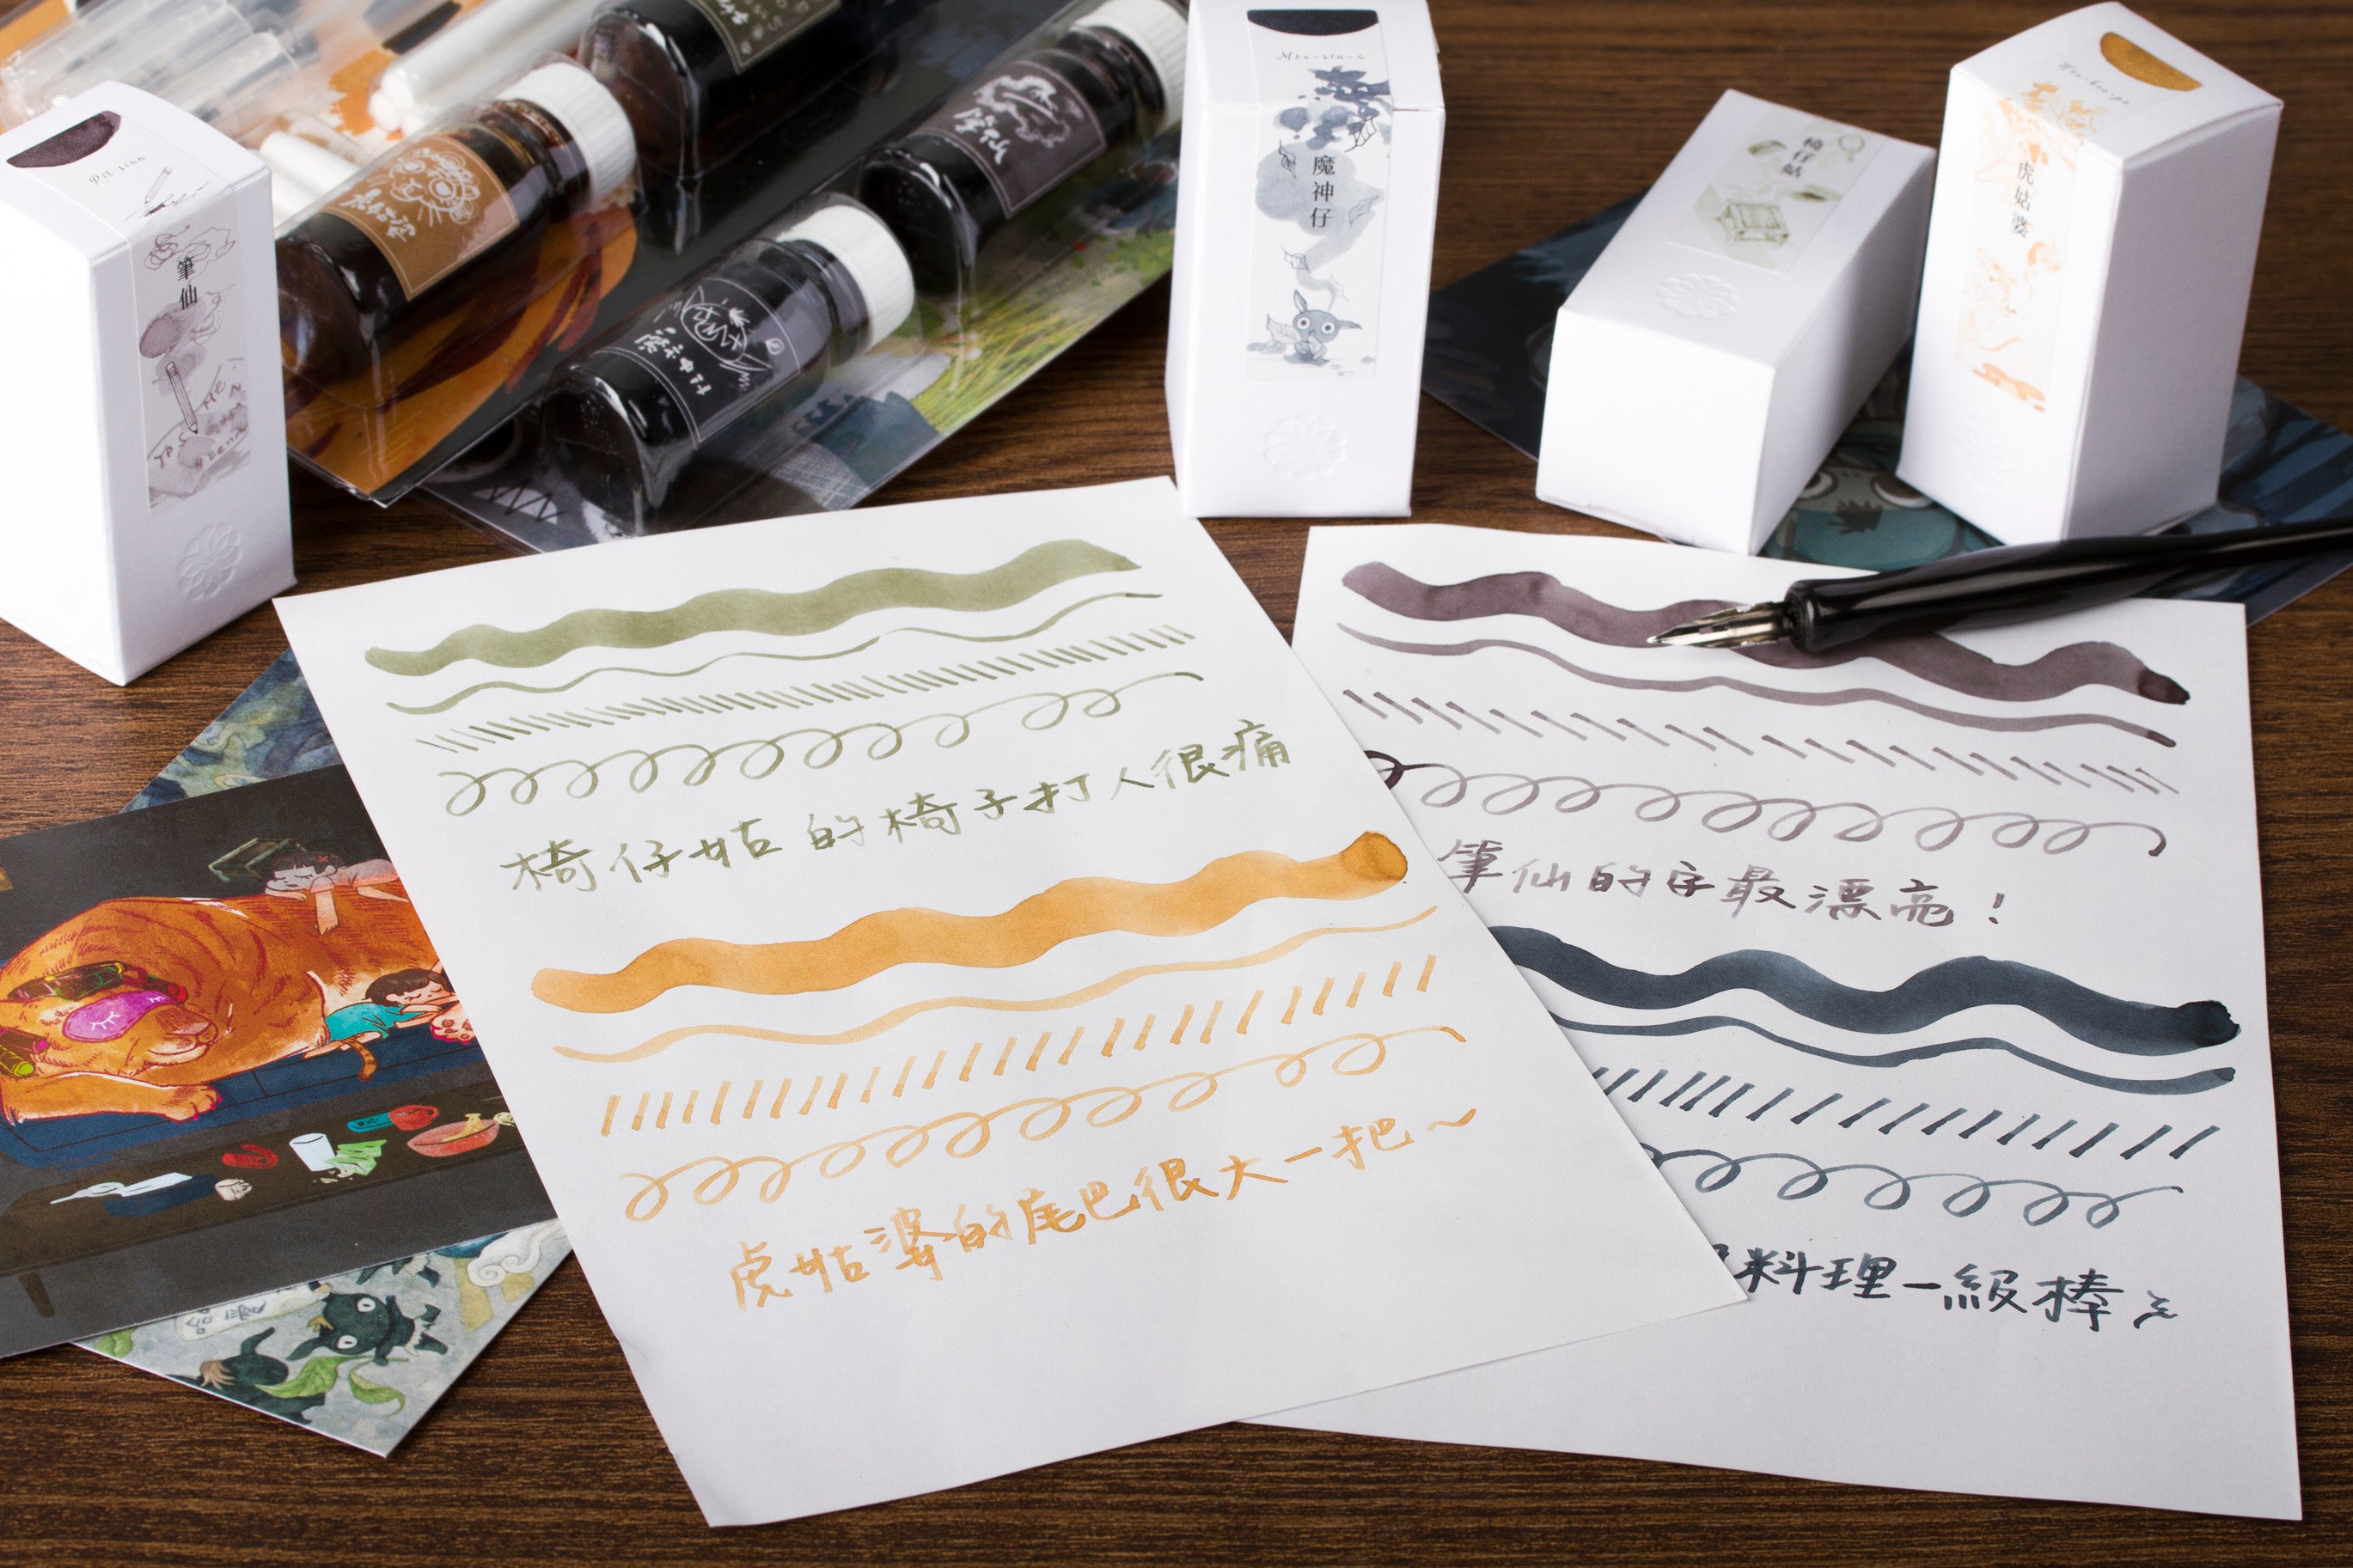 筆仙
虎姑婆
魔神仔
筆仙
魔神仔
椅仔姑
虎姑婆
椅仔姑的椅子打人很痛
虎姑婆的尾巴很大一把～
筆仙的字最漂亮！
料理一級棒